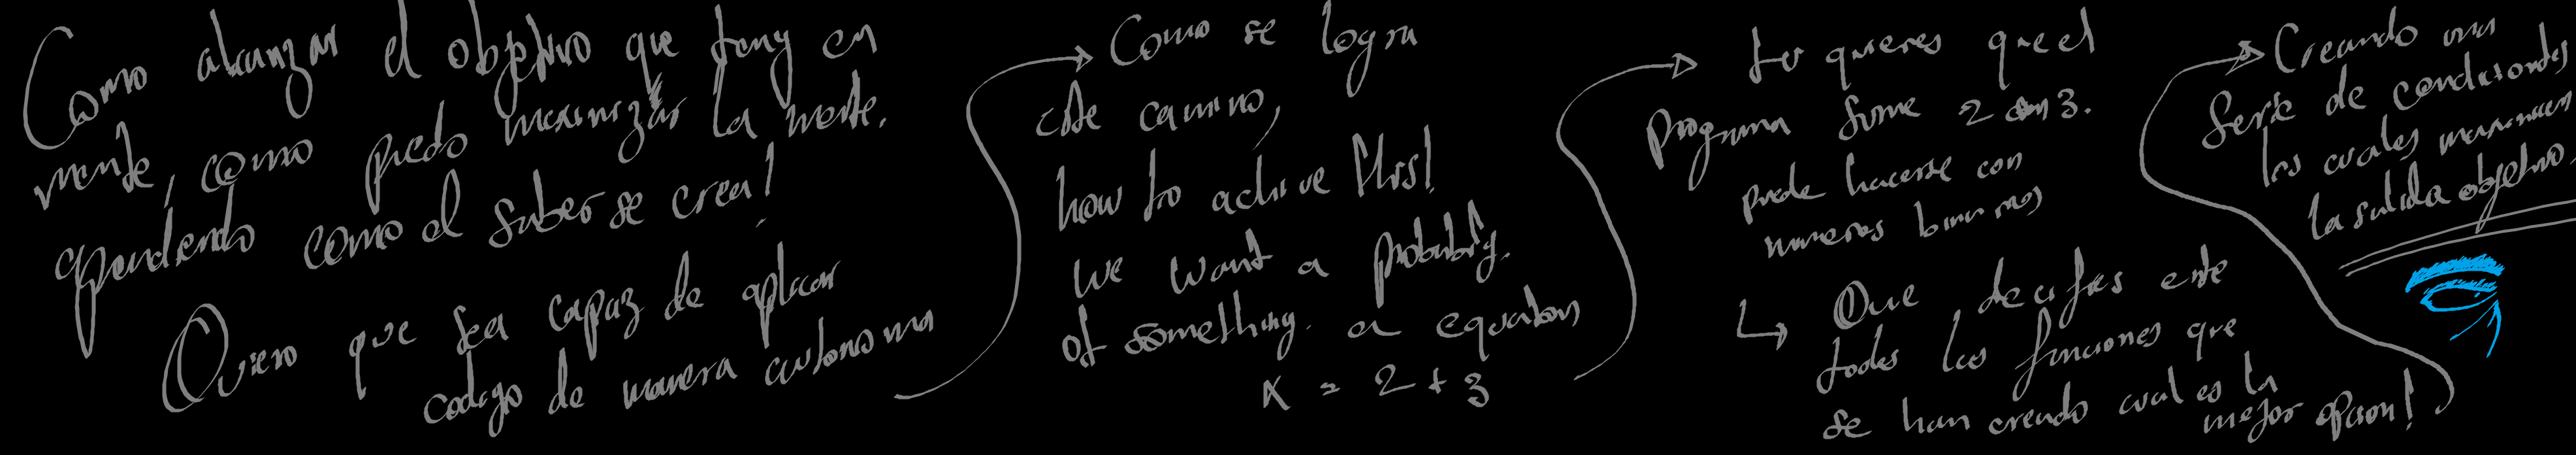 Como alcanzar el objetivo que teng en
mente, como puedo maximizar la mente.
apendiendo como el saber se crea!
Quiero que sea capaz de aplicar
codigo de manera autonoma
Como se logra
este camino,
how to achive this!
we want a probability.
of something. a equation
x = 2 + 3
tu quieres que el
programa sume 2 con 3.
puede hacerse con
numeros binarios
Que decifres entre
todas las funciones que
se han creado cual es la
mejor opcion!
Creando una
serie de condicionales
los cuales
la salida objetivo